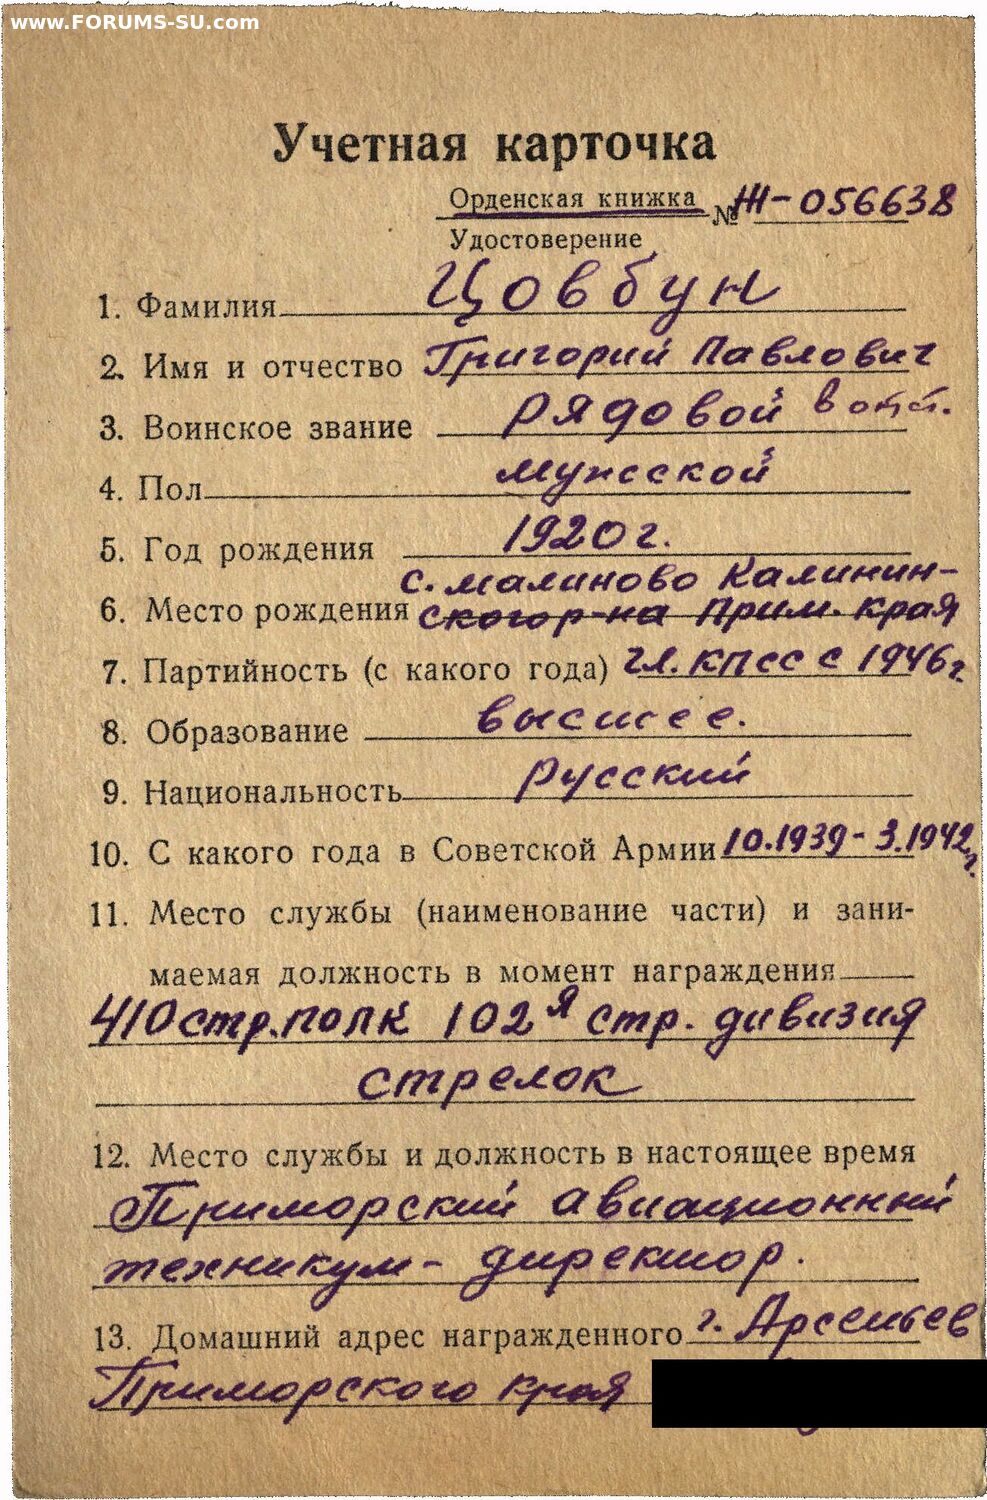 www.FORUMS-SU.com
Учетная карточка
Орденская книжка № Ж-056638
Удостоверение
1. Фамилия Цовбун
2. Имя и отчество Григорий Павлович
3. Воинское звание рядовой в отст.
4. Пол мужской
5. Год рождения 1920 г.
с. Малиново Калинин-
6. Место рождения ского р-на Прим. края
7. Партийность (с какого года) чл. КПСС с 1946 г.
8. Образование высшее.
9. Национальность русский
10. С какого года в Советской Армии 10.1939 - 3.1942 г.
11. Место службы (наименование части) и зани-
маемая должность в момент награждения
410 стр. полк 102я стр. дивизия
стрелок
12. Место службы и должность в настоящее время
Приморский авиационный
техникум - директор.
13. Домашний адрес награжденного г. Арсеньев
Приморского края